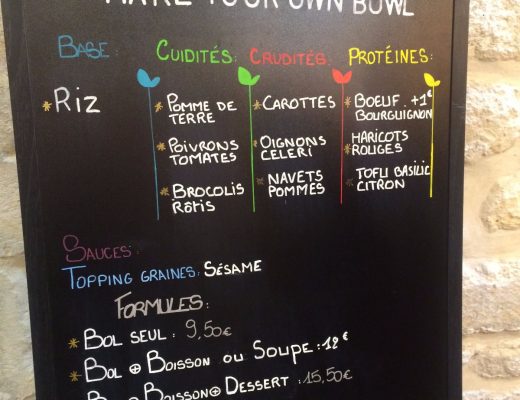 MAKE YOUR OWN BOWL
BASE:
* RIZ
CUIDITÉS:
* POMME DE
TERRE
* POIVRONS
TOMATES
* BROCOLIS
RÔTIS
CRUDITÉS:
* CAROTTES
* OIGNONS
CELERI
* NAVETS
POMMES
PROTÉINES:
* BOEUF .+1€
BOURGUIGNON
HARICOTS
* ROUGES
* TOFU BASILIC
CITRON
SAUCES:
TOPPING GRAINES: SÉSAME
FORMULES:
* BOL SEUL : 9,50€
* BOL ⊕ BOISSON OU SOUPE : 12€
* BOL ⊕ BOISSON ⊕ DESSERT : 15,50€